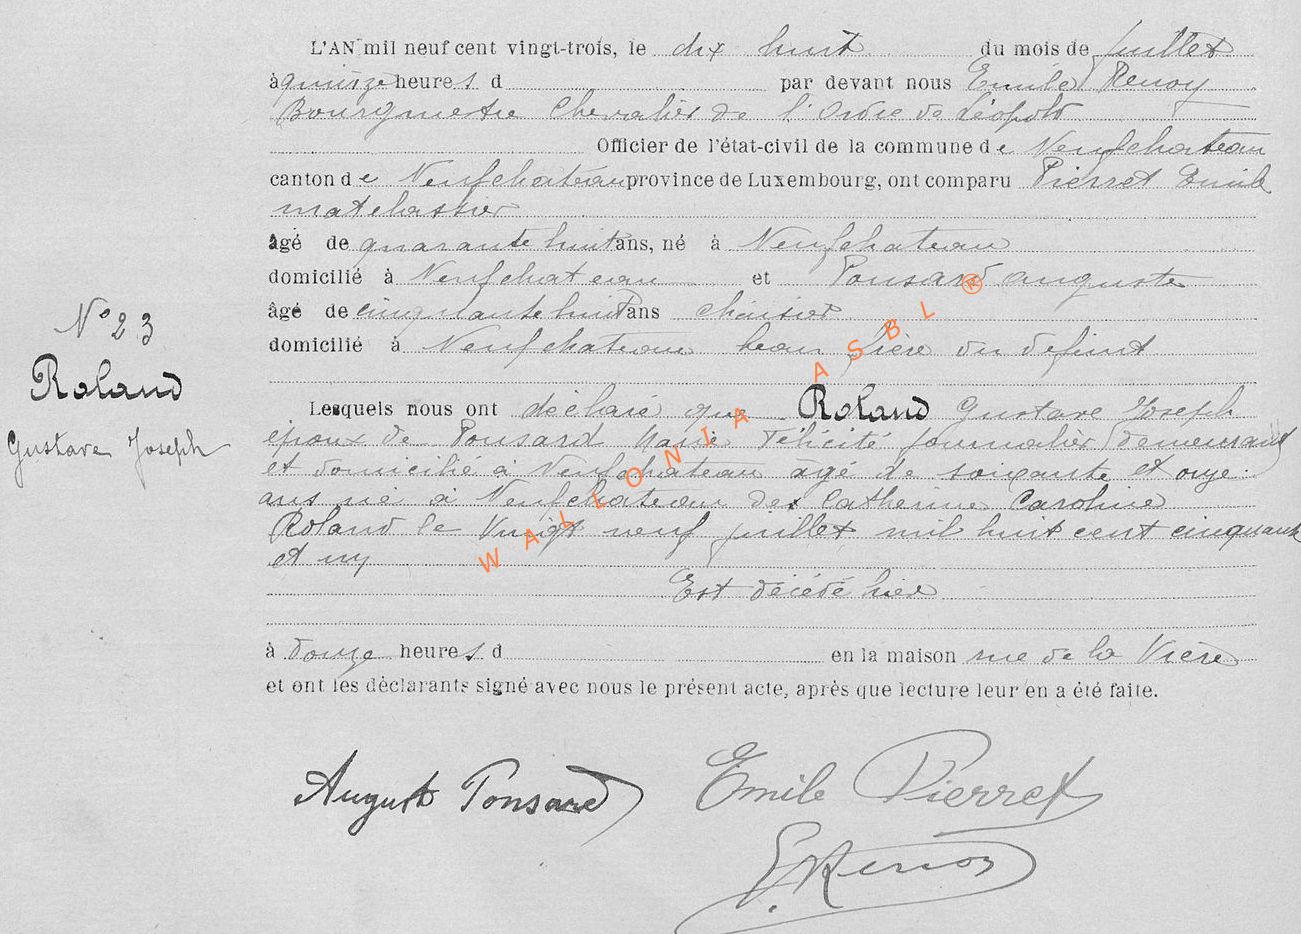 L'AN mil neuf cent vingt-trois, le dix huit du mois de juillet
à quinze heures d par devant nous Emile Renoy
Bourgmestre Chevalier de l'Ordre de Léopold
Officier de l'état-civil de la commune de Neufchateau
canton de Neufchateau province de Luxembourg, ont comparu Pierret Emile
matelassier
âgé de quarante huit ans, né à Neufchateau
domicilié à Neufchateau et Ponsard auguste
âgé de cinquante huit ans chaisier
domicilié à Neufchateau beau frère du defunt
N° 23
Roland
Gustave Joseph
Lesquels nous ont déclaré que Roland Gustave Joseph
époux de Ponsard Marie Félicité journalier demeurant
et domicilié à Neufchateau agé de soixante et onze
ans né à Neufchateau des Catherine Caroline
Roland le Vingt neuf juillet mil huit cent cinquante
et un
Est décédé hier
à douze heures d en la maison rue de la Vière
et ont les déclarants signé avec nous le présent acte, après que lecture leur en a été faite.
August Ponsard Emile Pierret
E. Renoy
WALLONIA ASBL ®